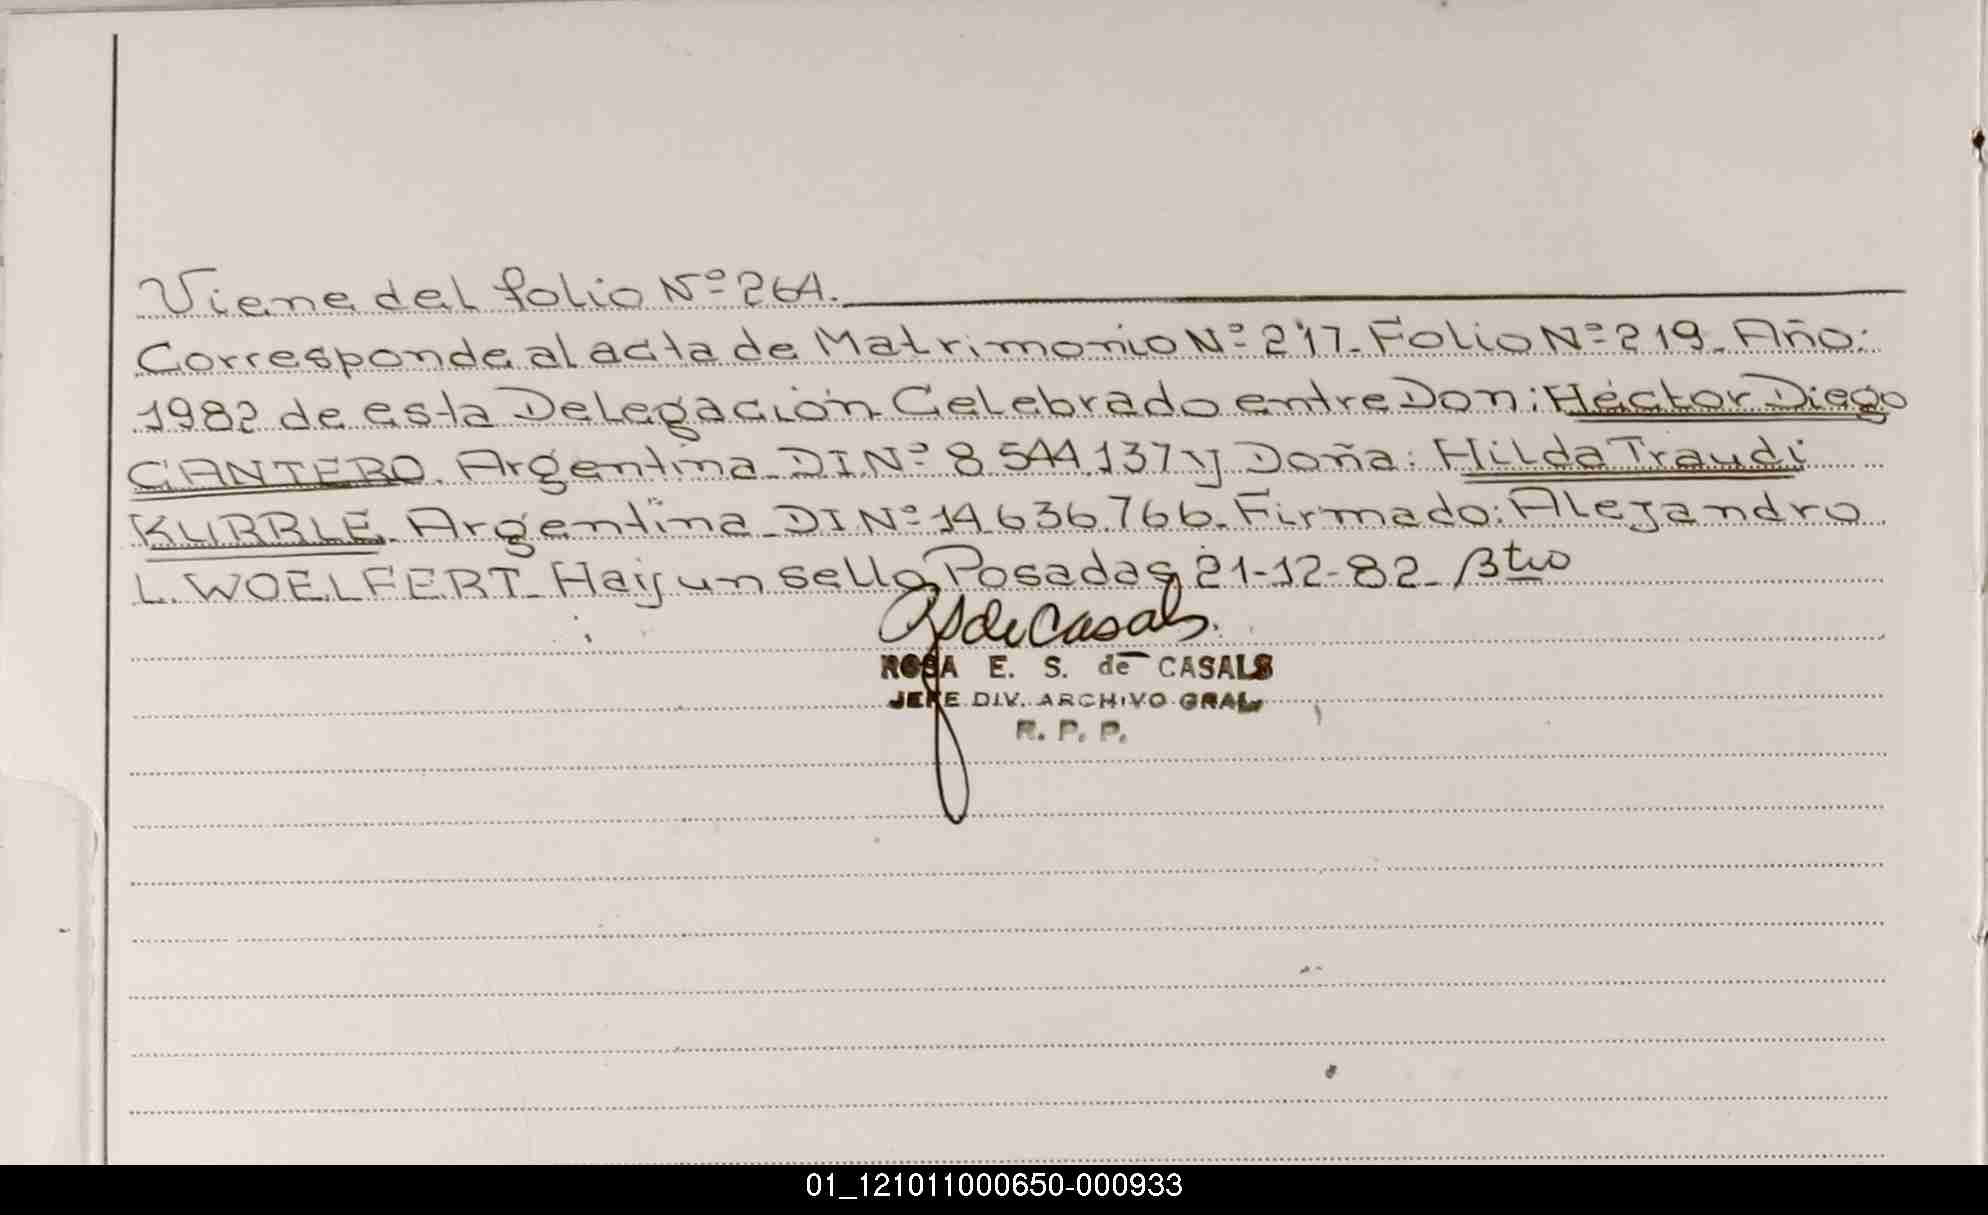 Viene del folio Nº 264.
Corresponde al acta de Matrimonio Nº 217. Folio Nº 219. Año:
1982 de esta Delegación Celebrado entre Don: Héctor Diego
CANTERO. Argentina. DI Nº 8 544.137 y Doña: Hilda Traudi
KURRLE. Argentina. DI Nº 14.636.766. Firmado: Alejandro
L. WOELFERT. Hay un sello Posadas, 21-12-82.
RSdeCasals.
ROSA E. S. de CASALS
JEFE DIV. ARCHIVO GRAL.
R. P. P.
01_121011000650-000933